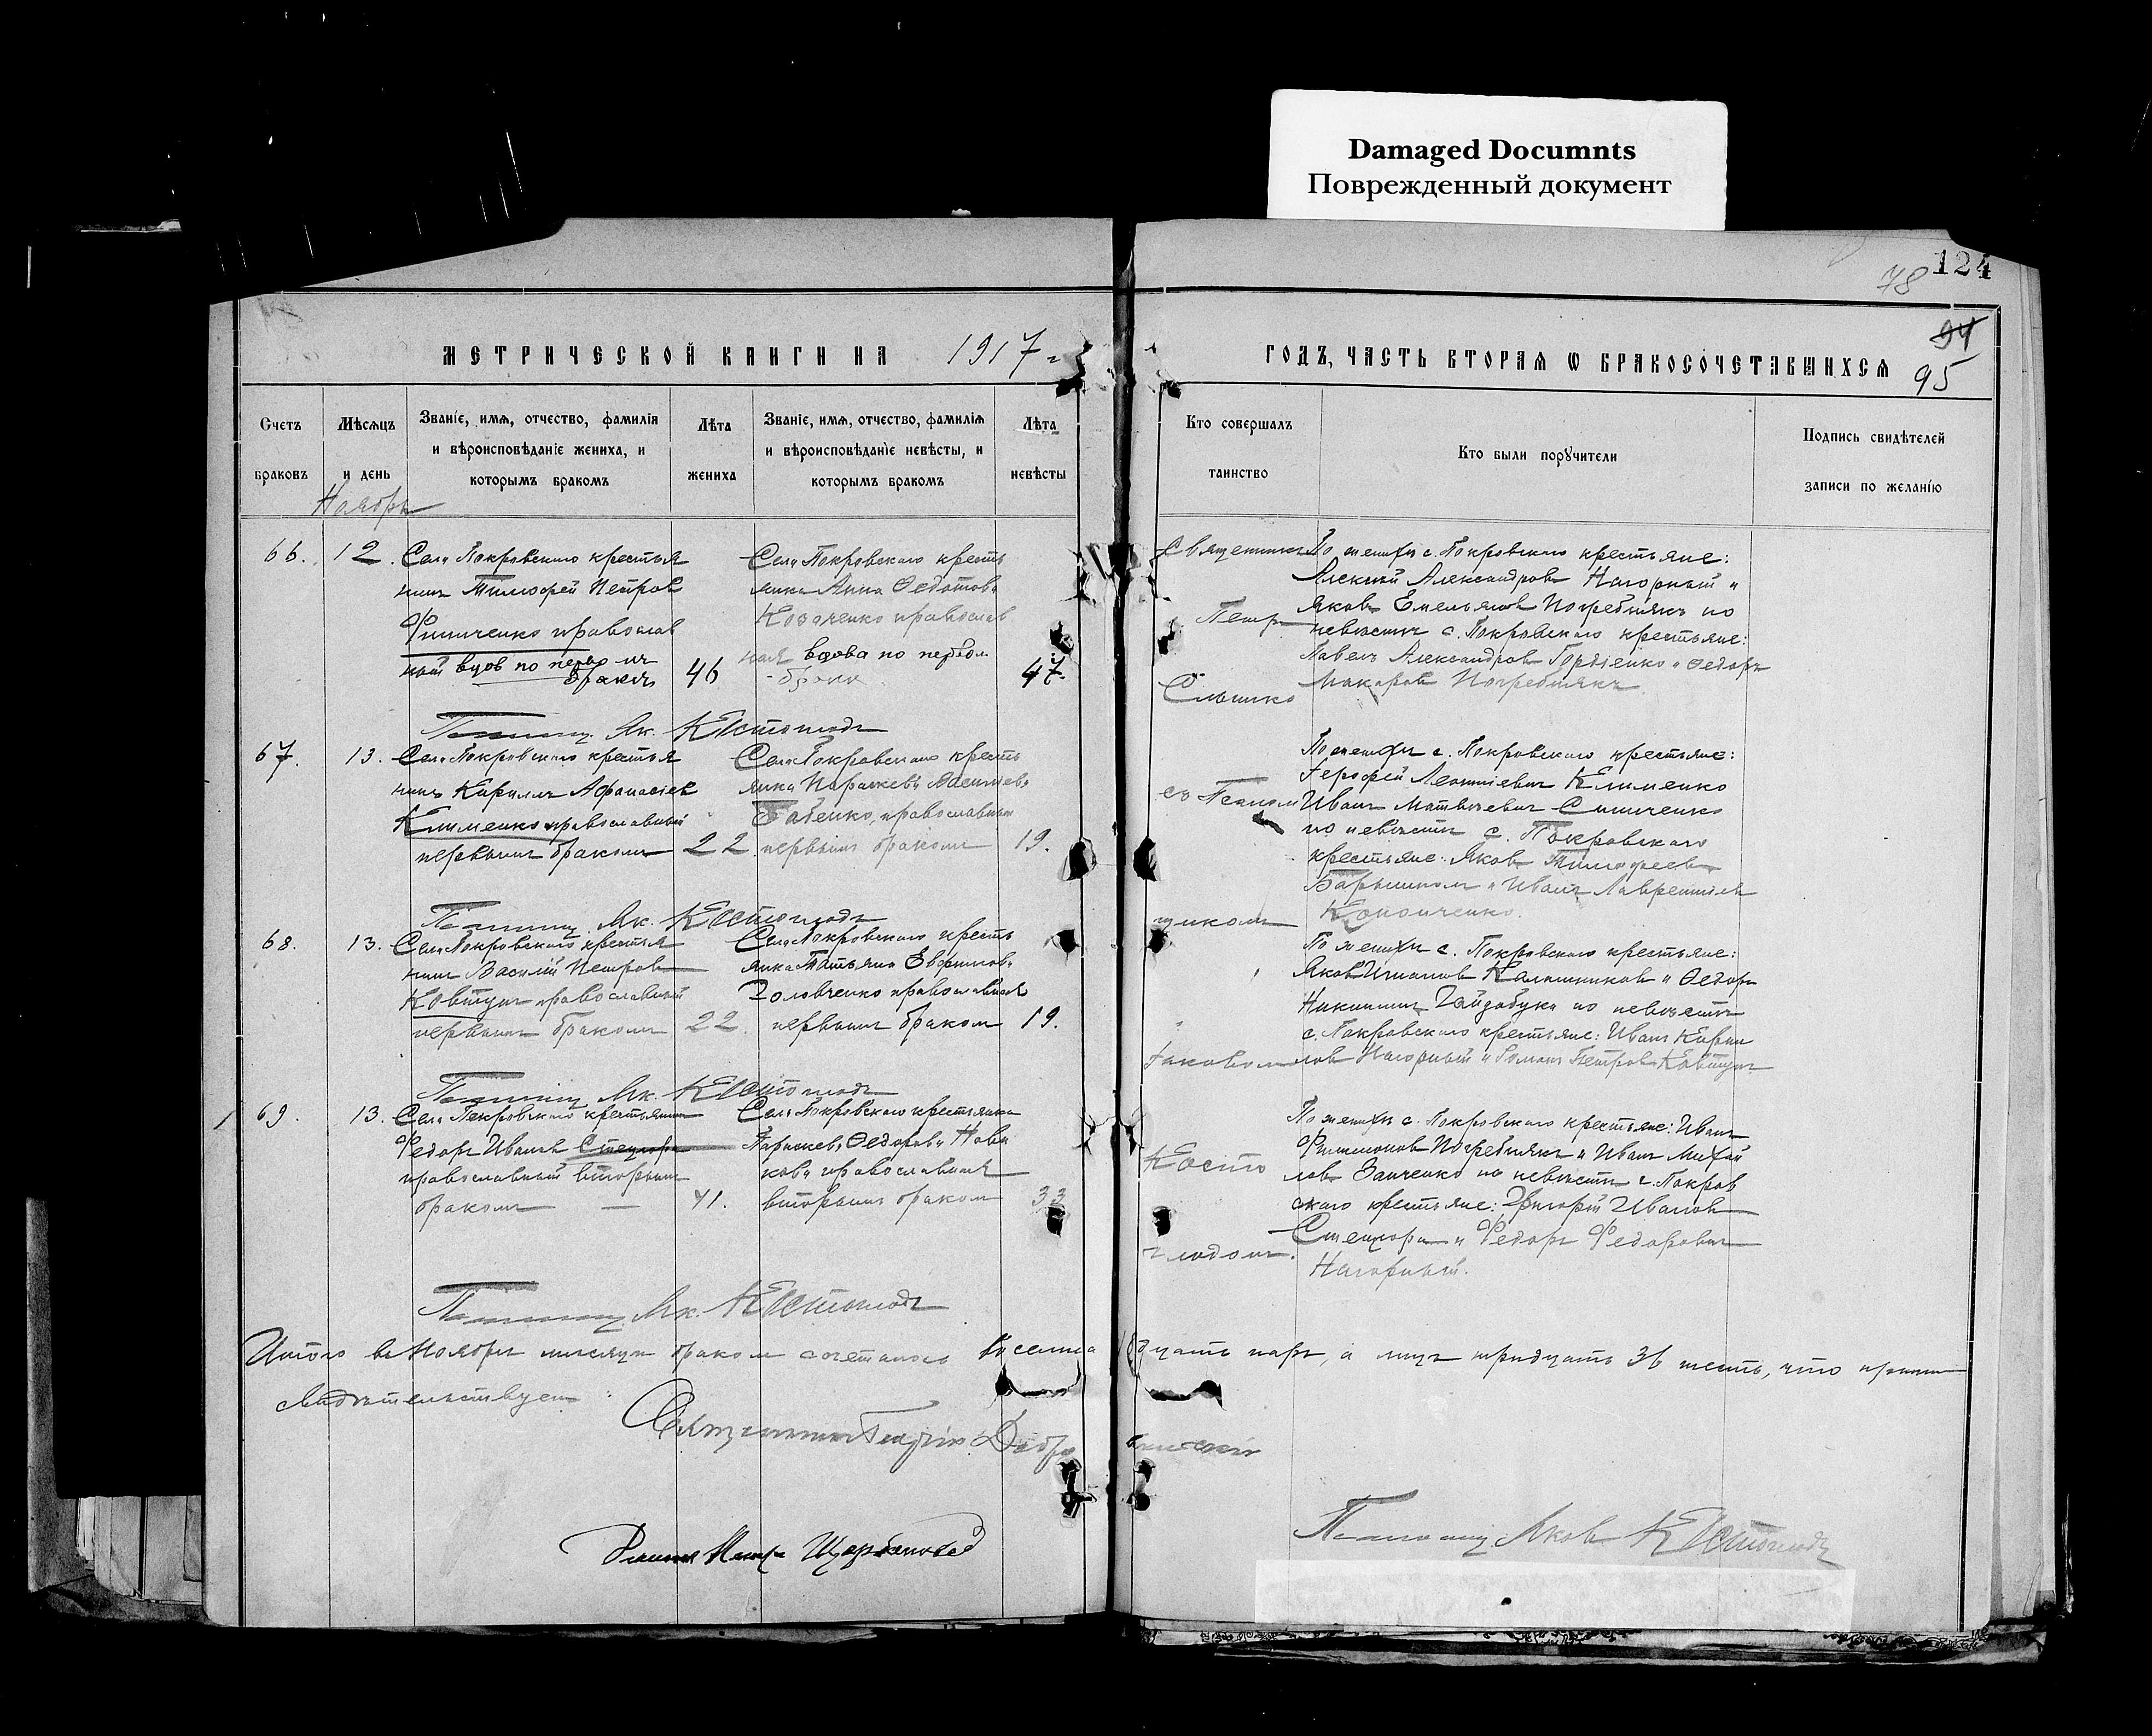 Damaged Documnts
Поврежденный документ
124
78
94
95
МЕТРИЧЕСКОЙ КНИГИ НА 1917 г
ГОДЪ, ЧАСТЬ ВТОРАЯ Ѡ БРАКОСОЧЕТАВШИХСЯ
Счетъ браковъ
Мѣсяцъ и день
Званіе, имя, отчество, фамилія
и вѣроисповѣданіе жениха, и
которымъ бракомъ
Лѣта жениха
Званіе, имя, отчество, фамилія
и вѣроисповѣданіе невѣсты, и
которымъ бракомъ
Лѣта невѣсты
Кто совершалъ
таинство
Кто были поручители
Подпись свидѣтелей
записи по желанію
Ноябрь
66.
12.
Села Покровскаго крестья
нинъ Тимофей Петровъ
православ
ный вдов по первом
бракѣ
46
Села Покровскаго кресть
янка Анна Ѳедотова
Козаченко православ
ная вдова по первом
браку
47.
Священникъ
Петръ
Слышко
По женихѣ с. Покровскаго крестьяне:
Алексій Александровъ Нагорный и
Яковъ Емельяновъ Погребнякъ по
невѣстѣ с. Покровскаго крестьяне:
Павелъ Александровъ Гордіенко и Ѳедоръ
Макаровъ Погребнякъ.
Як. Костоглодъ
67.
13.
Села Покровскаго крестья
нинъ Кириллъ Афанасіев
Клименко православный
первымъ бракомъ
22
Села Покровскаго кресть
янка Параскева Васильева
Бабенко, православная
первымъ бракомъ
19.
съ Псалом
щикомъ
По женихѣ с. Покровскаго крестьяне:
Іерофей Леонтіевичъ Клименко
Иванъ Матвѣевичъ Синиченко
по невѣстѣ с. Покровскаго
крестьяне: Яковъ Тимофеевъ
и Иванъ Лаврентіевъ
Кононченко.
Як. Костоглодъ
68.
13.
Села Покровскаго крестья
нинъ Василій Петровъ
Ковтунъ православный
первымъ бракомъ
22
Села Покровскаго кресть
янка Татьяна Евфимова
Головченко православная
первымъ бракомъ
19.
Іаковомъ
По женихѣ с. Покровскаго крестьяне:
Яковъ Игнатов Калашниковъ и Ѳедоръ
Никитинъ Гайдабука по невѣстѣ
с. Покровскаго крестьяне: Иванъ Кирил
ловъ Нагорный и Романъ Петровъ Ковтунъ
Як. Костоглодъ
69.
13.
Села Покровскаго крестьянин
Федоръ Ивановъ
православный вторымъ
бракомъ
41.
Села Покровскаго крестьянка
Параскева Ѳедорова Нова
кова православная
вторымъ бракомъ
33
Косто
глодомъ.
По женихѣ с. Покровскаго крестьяне: Иванъ
Филимоновъ Погребнякъ и Иванъ Михай
ловъ Заиченко по невѣстѣ с. Покров
скаго крестьяне: Григорій Ивановъ
и Федоръ Федоровичъ
Нагорный.
Як. Костоглодъ
Итого въ Ноябрѣ месяцѣ бракомъ сочеталось восемна дцать паръ, а лицъ тридцать 36 шесть, что
свидѣтельствуемъ:
Священникъ Добро
Яковъ Костоглодъ